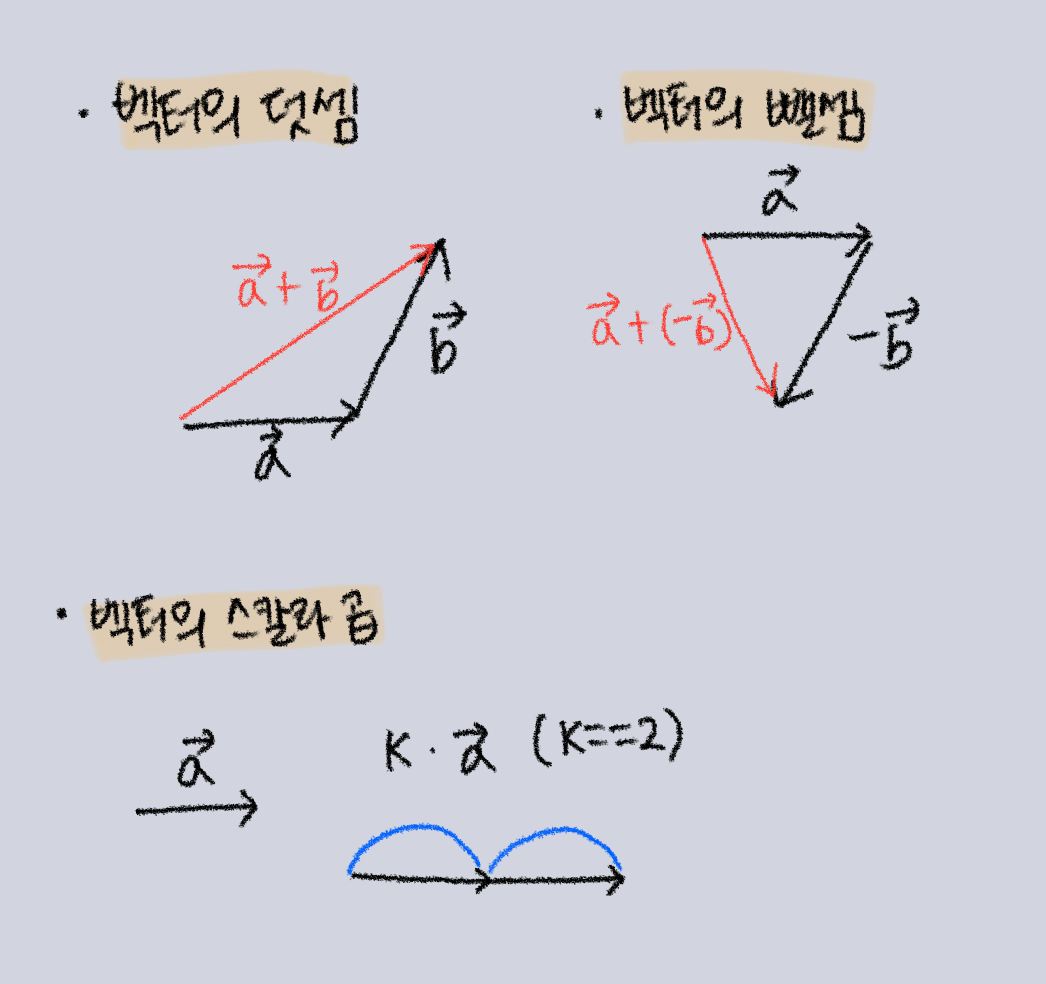 · 벡터의 덧셈
a⃗ + b⃗
b⃗
a⃗
· 벡터의 뺄셈
a⃗
a⃗ + (-b⃗)
-b⃗
· 벡터의 스칼라 곱
a⃗
K · a⃗ (K==2)